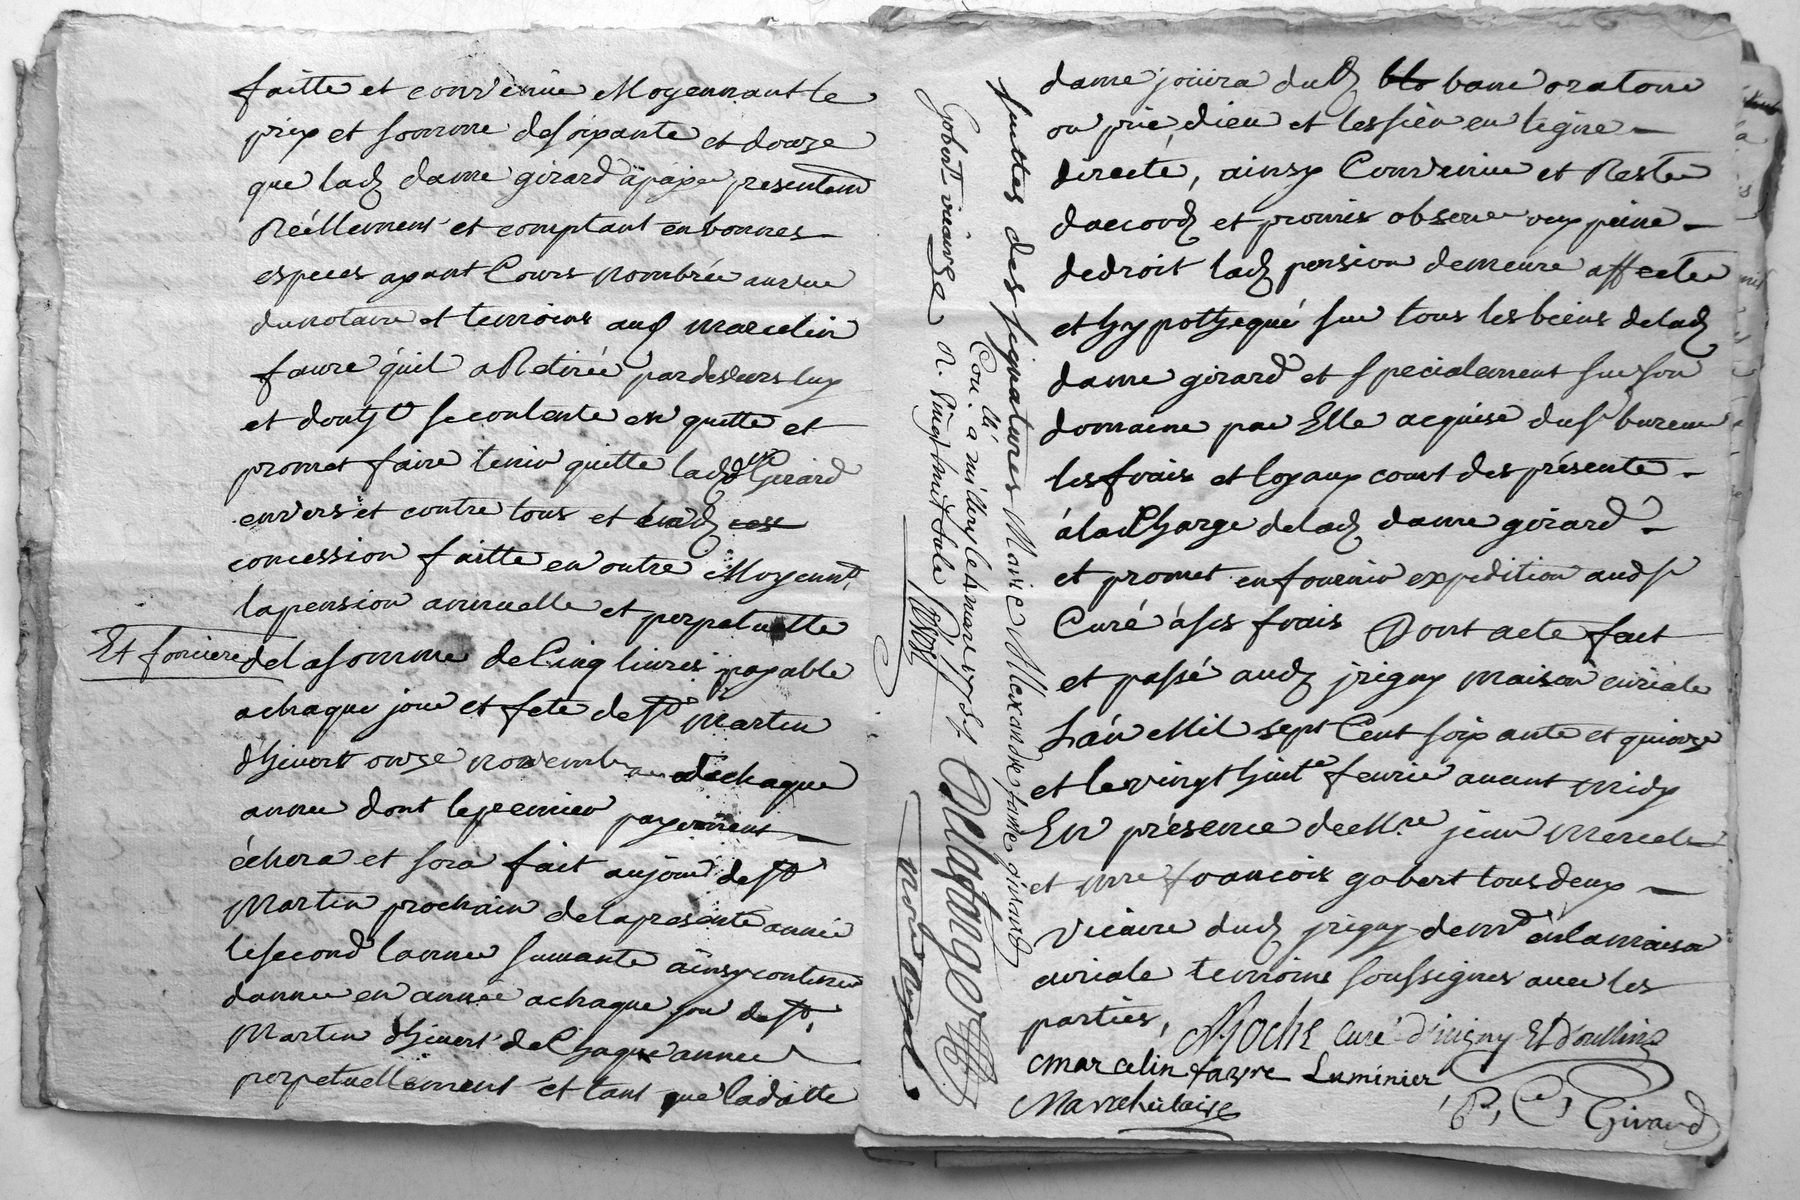 faitte et convenüe Moyennant le
prix et somme de soixante et douze
que lad. dame girard a payée presentem
Réellement et comptant en bonnes
especes ayant Cours nombrée au vue
du notaire et temoins aud marcelin
favre qu'il a Retirée par devers luy
et dont se contente en quitte et
promet faire tenir quitte lad. d. Girard
envers et contre tous et lad.
concession faitte en outre Moyennt
la pension annuelle et perpetuelle
Et fonciere de la somme de Cinq livres payable
a chaque jour et fete de St Martin
d'hivert onze novembre de chaque
année dont le premier payement
échera et sera fait au jour de St
Martin prochain de la presente année
le second l'année suivante ainsy continuer
d'année en année a chaque jour de St
Martin d'hivert de Chaque année
perpetuellement et tant que ladatte
dame joüira dud. banc oratoire
ou prie dieu et les sien en ligne
directe, ainsy Convenüe et Reste
d'accord et promis observer peine
de droit lad. pension demeure affectée
et hypothequé sur tous les biens de lad.
dame girard et specialement sur son
domaine par Elle acquise du sr bureau
les frais et loyaux cout des présente
à la Charge de lad. dame girard
et promet en fournir expedition aud sr
Curé à ses frais Dont acte fait
et passé aud. jrigny maison curiale
L'an Mil sept Cent soixante et quinze
et le vingt huite fevrie avant midy
En présence de Mre jean
et mre francois gobert tous deux
Vicaire dud. jrigny dem en la maison
curiale temoins soussignes avec les
parties, Roche curé d'irigny Et D'oullins
Marcelin favre Luminier
Girard
suittes des signatures Marie Alexandre fame girard
Gobert vicaire
Con. a millery le 4 mars 1775
R. vingt huit sols
Delafange
nore Royal